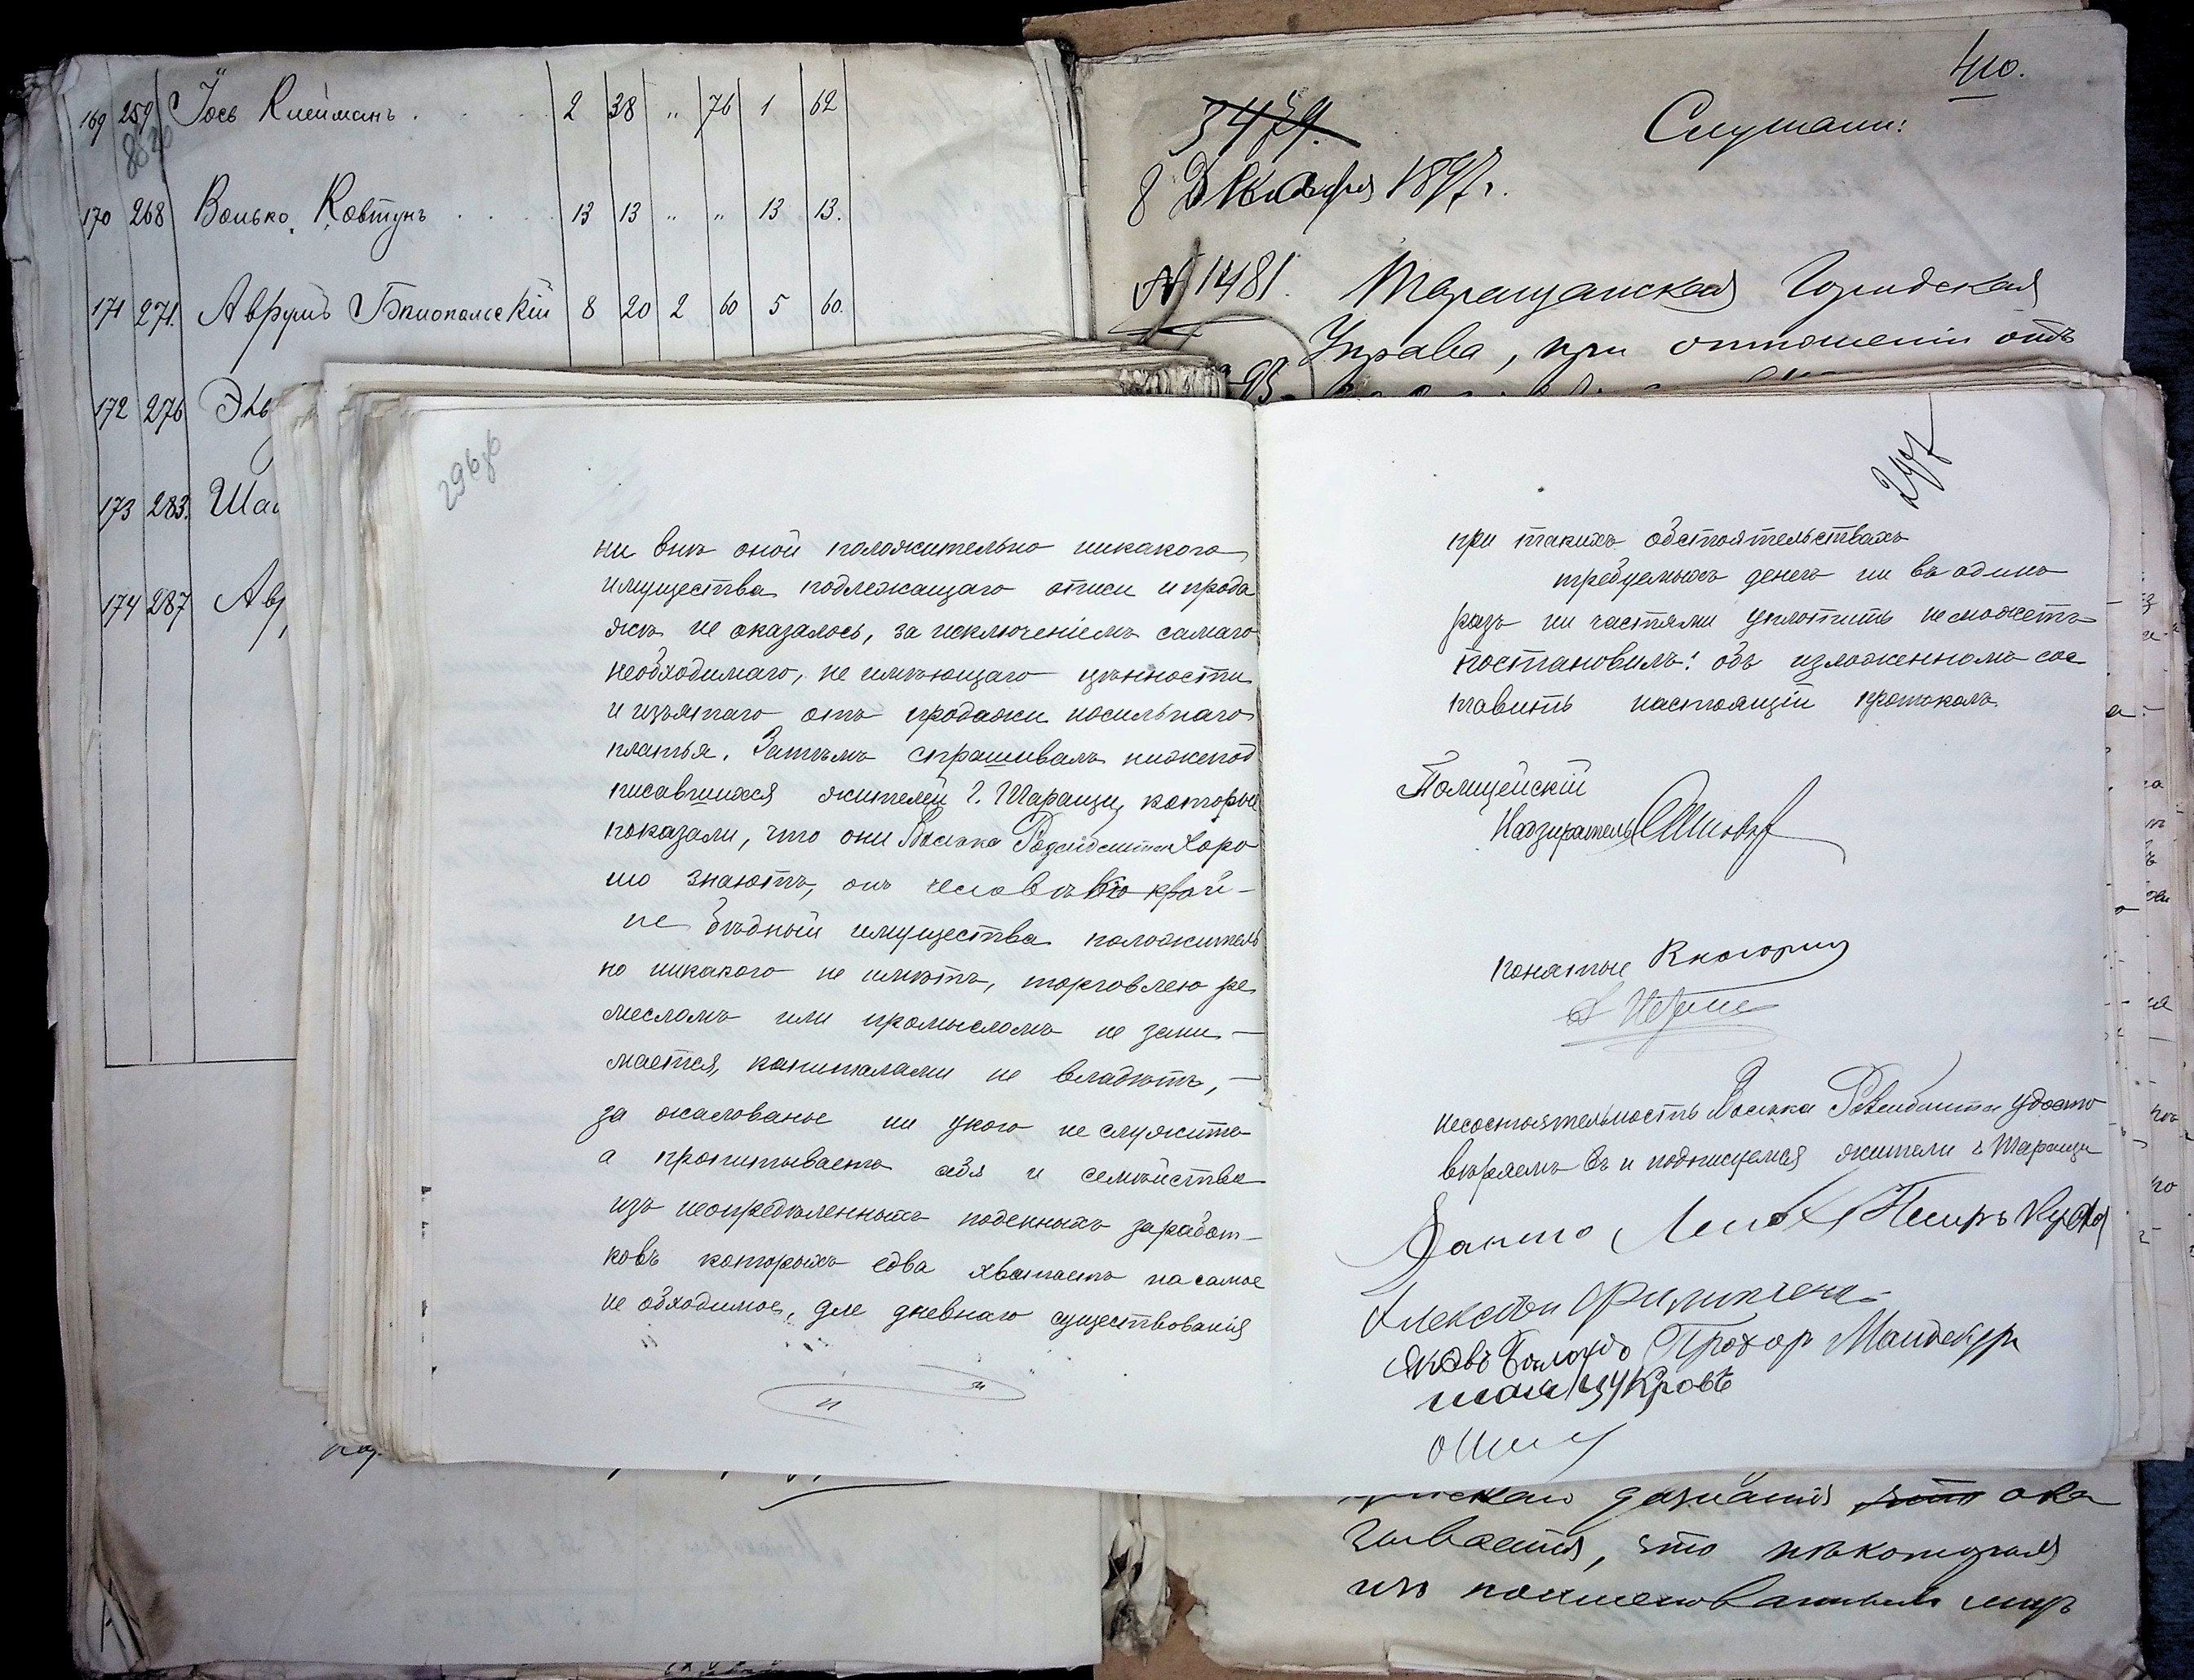 169 259 Іось Клейманъ . . . 2 38 „ 76 1 62
170 268 Волько Ковтунъ . . . 13 13 „ „ 13 13.
171 271. Аврумъ Бѣлопольскій 8 20 2 60 5 60.
172 276
173 283.
174 287
410.
3479.
Слушали:
8 Декабря 1897 г.
№ 1481. Таращанская Городская
Управа, при отношеніи отъ
296 об
ни внѣ оной положительно никакого
имущества подлежащаго описи и прода
жѣ не оказалось, за исключеніемъ самаго
необходимаго, не имѣющаго цѣнности
и изъятаго отъ продажи носильнаго
платья. Затѣмъ спрашивалъ нижепод
писавшихся жителей г. Таращи, которые
показали, что они Хоро
шо знаютъ, онъ человѣкъ край-
не бѣдный имущества положитель
но никакого не имѣетъ, торговлею ре
месломъ или промысломъ не зани-
мается, капиталами не владѣетъ,
за жалованье ни укого не служитъ
а пропитываетъ себя и семейство
изъ неопредѣленныхъ поденныхъ заработ-
ковъ которыхъ едва хватаетъ на самое
не обходимое, для дневнаго существованія
297
при такихъ обстоятельствахъ
требуемыхъ денегъ ни въ одинъ
разъ ни частями уплотить не можетъ
постановилъ: объ изложенномъ сос
тавить настоящій протоколъ.
Полицейскій
Надзиратель
понятые
несостоятельность удосто
вѣряемъ въ и подписуемся жители г Таращи
Петръ
Алексѣй
Яковъ Прохор
дознанія что ока
зывается, что нѣкоторыя
изъ поименованныхъ